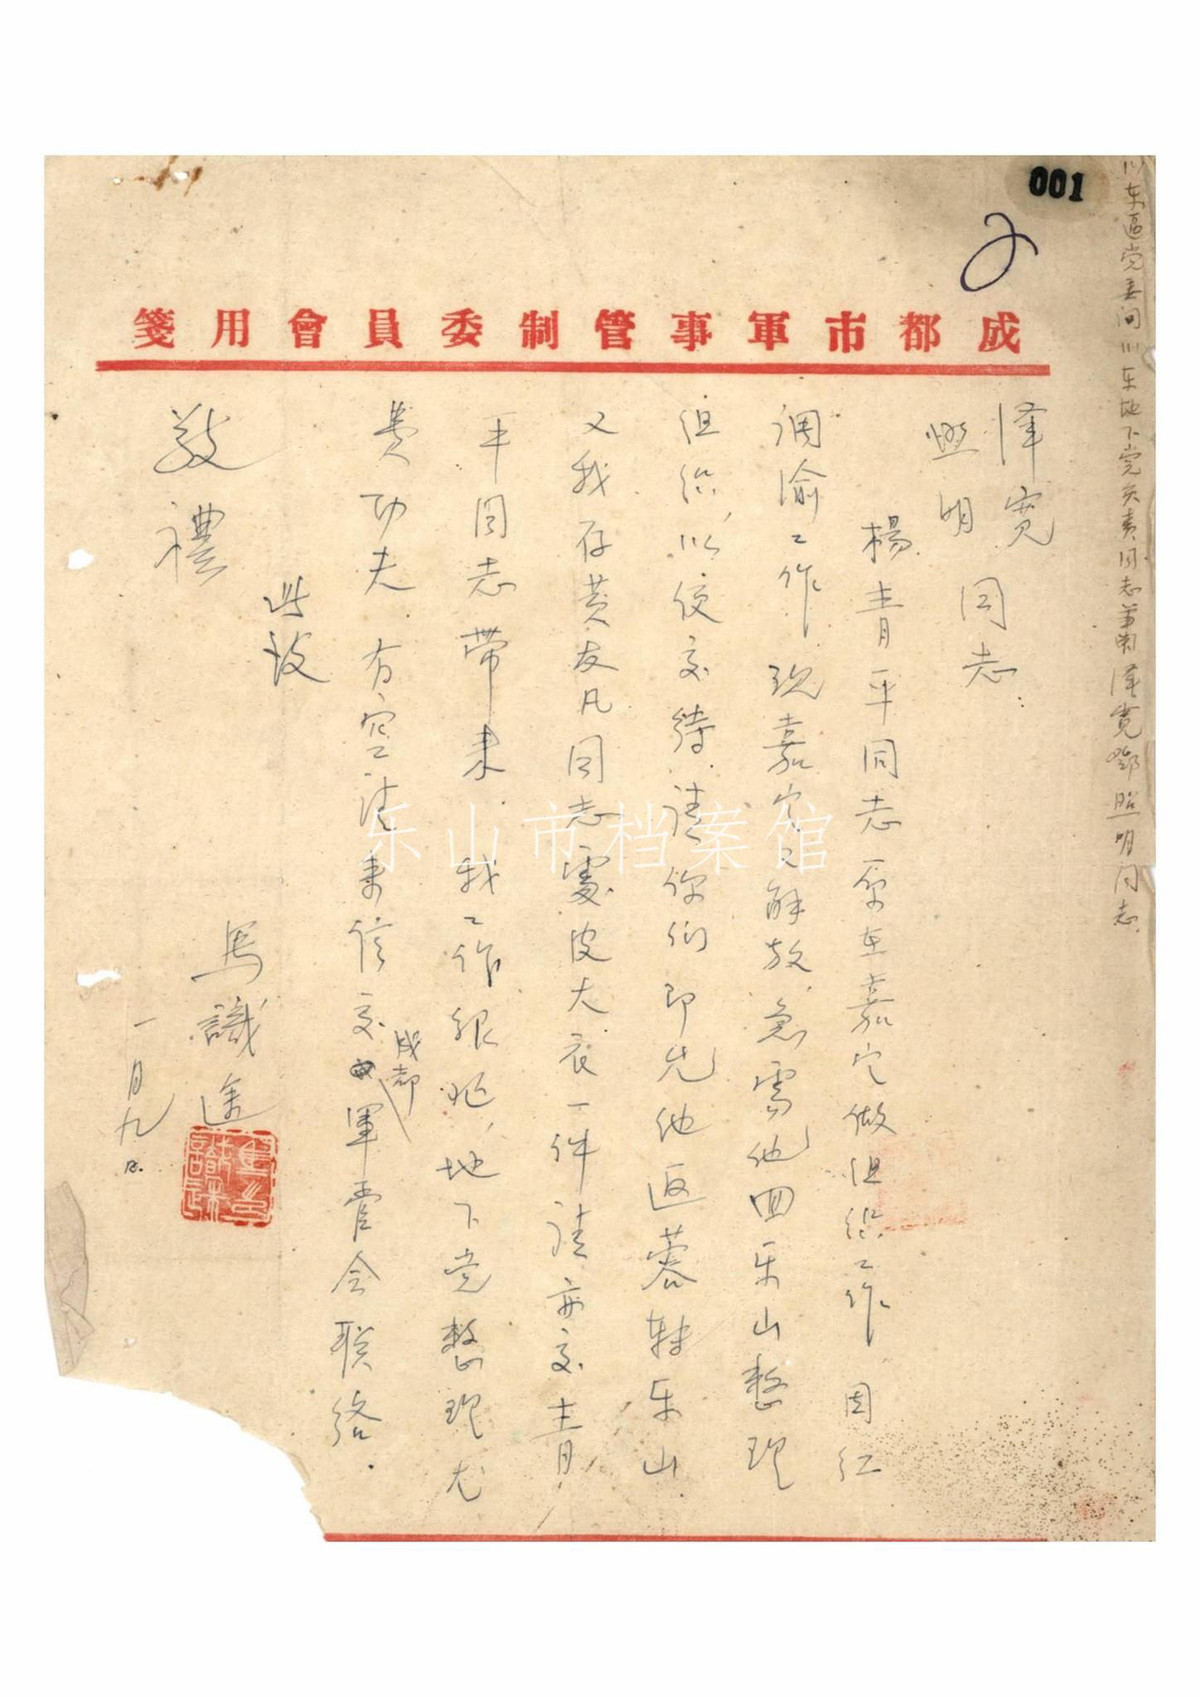 001
成都市軍事管制委員會用箋
川东区党委问川东地下党负责同志萧泽宽邓照明同志
泽宽
照明同志：
楊青平同志原在嘉定做组织工作，因红
调渝工作，现嘉定已解放急需他回乐山整理
组织，以便交待，请你们即先他返蓉转乐山。
又我存黄友凡同志處皮大衣一件请亦交青
平同志带来，我工作很忙，地下党整理尤
费功夫，方空请来信交成都軍管会联络。
此致
敬禮
馬識途
一月九日
乐山市档案馆